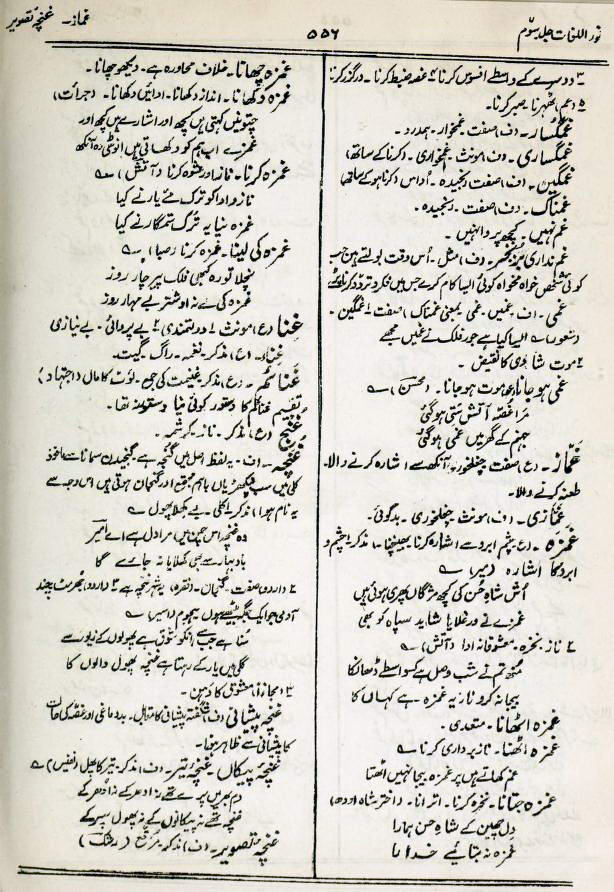 نور اللغات جلد سوّم
۵۵۶
غماز۔ غنچۂ تصویر
۳ دوسرے کے واسطے افسوس کرنا ۴ غصہ ضبط کرنا۔ درگزر کرنا
۵ (عم) ٹھہرنا۔ صبر کرنا۔
غمگسار۔ (ف) صفت۔ غمخوار۔ ہمدرد۔
غمگساری۔ (ف) مونث۔ غمخواری۔ (کرنا کے ساتھ)
غمگین۔ (ف) صفت رنجیدہ۔ اُداس (کرنا ہونے کے ساتھ)
غمناک۔ (ف) صفت۔ رنجیدہ۔
غم نہیں۔ کچھ پروا نہیں۔
غم نداری بز بخر۔ (ف) مثل۔ اُس وقت بولتے ہیں جب
کوئی شخص خواہ مخواہ کوئی ایسا کام کرے جس میں فکر و تردّد کرنا پڑے
غمی۔ (ف) غمیں۔ غمی۔ بمعنی غمناک) صفت ۱ غمگین۔
(شعور) ؎ ایسا کیا ہے جورِ فلک نے غمیں مجھے
۲ موت شادی کا نقیض۔
غمی ہو جانا۔ موت ہو جانا۔ (محسن) ؎
مرا غصّہ آتش ستی ہو گئی
جہنم کے گھر میں غمی ہو گئی
غمّاز۔ (ع) صفت چغلخور۔ آنکھ سے اشارہ کرنے والا۔
طعنہ کرنے والا۔
غمّازی۔ (ف) مونث۔ چغلخوری۔ بدگوئی۔
غمزہ۔ (ع) چشم ابرو سے اشارہ کرنا۔ بھینچنا) مذکر ۱ چشم و
ابرو کا اشارہ (میر) ؎
اُس شاہِ حسن کی کچھ مژگاں پھری ہوئی ہیں
غمزے نے ورغلایا شاید سپاہ کو بھی
۲ ناز۔ نخرہ۔ معشوقانہ ادا (آتش) ؎
منھ تم نے شب وصل ہے کسواسطے ڈھانکا
بیجا نہ کرو ناز یہ غمزہ ہے کہاں کا
غمزہ اٹھانا۔ متعدی۔
غمزہ اٹھنا۔ ناز برداری کرنا ؎
غم کھاتے ہیں پر غمزۂ بیجا نہیں اٹھتا
غمزہ جتانا۔ نخرہ کرنا۔ اترانا۔ (اختر شاہ اودھ)
دل چھین کے شاہِ حسن ہمارا
غمزہ نہ جتائیے خدارا
غمزہ چھانا۔ خلاف محاورہ ہے۔ دیکھو چھانا۔
غمزہ دکھانا۔ انداز دکھانا۔ ادائیں دکھانا۔ (جرأت)
چتونیں کہتی ہیں کچھ اور اشارے ہیں کچھ اور
غمزے اب ہم کو دکھاتی ہیں انوٹھی وہ آنکھ
غمزہ کرنا۔ ناز اور عشوہ کرنا (آتش) ؎
ناز و ادا کو ترک مرے یار نے کیا
غمزہ نیا یہ ترک ستمگار نے کیا
غمزہ کی لینا۔ غمزہ کرنا (صبا) ؎
نچلا تو رہ کبھی فلک پیر چار روز
غمزہ کی لے نہ او شتر بے مہار روز
غِنا (ع) مونث ۱ دولتمندی ۲ بے پروائی۔ بے نیازی
غناء۔ (ع) مذکر۔ نغمہ۔ راگ گیت۔
غنائم۔ (ع) مذکر غنیمت کی جمع۔ لوٹ کا مال (اجتہاد)
تقسیم غنائم کا دستور کوئی نیا دستور نہ تھا۔
غنج (ع) مذکر۔ ناز۔ کرشمہ۔
غنچہ۔ (ف۔ یہ لفظ اصل میں گنجہ ہے۔ گنجیدن سمانا سے ماخوذ
کلی میں سب پنکھڑیاں باہم مجتمع اور گنجان ہوتی ہیں اس وجہ سے
یہ نام ہوا) مذکر ۱ کلی۔ بے کھلا پھول ؎
وہ غنچہ اس چمن میں مرا دل ہے اے امیر
بادِ بہار سے بھی کھلایا نہ جائے گا
۲ (اردو) صفت۔ گنجان۔ (فقرہ) یہ شہر غنچہ ہے ۳ (اردو) جھرمٹ چند
آدمی جو ایک جگہ بیٹھے ہوں۔ ہجوم (اسیر) ؎
سنا ہے جب سے انکو شوق ہے پھولوں کے زیور سے
گلی میں یار کے رہتا ہے غنچہ پھول والوں کا
۴ (مجازاً) معشوق کا دہن۔
غنچہ پیشانی (ف) شگفتہ پیشانی کا مقابل۔ بد دماغی اور غصّہ کی علامت
کا پیشانی سے ظاہر ہونا۔
غنچۂ پیکاں۔ غنچۂ تیر۔ (ف) مذکر۔ تیر کا پھل (نفیس) ؎
دم بھر میں پرے تھے نہ ادھر کے نہ ادھر کے
غنچے تھے نہ پیکانوں کے نہ پھول سپر کے
غنچۂ تصویر۔ (ف) مذکر۔ مرقع (رشک) ؎